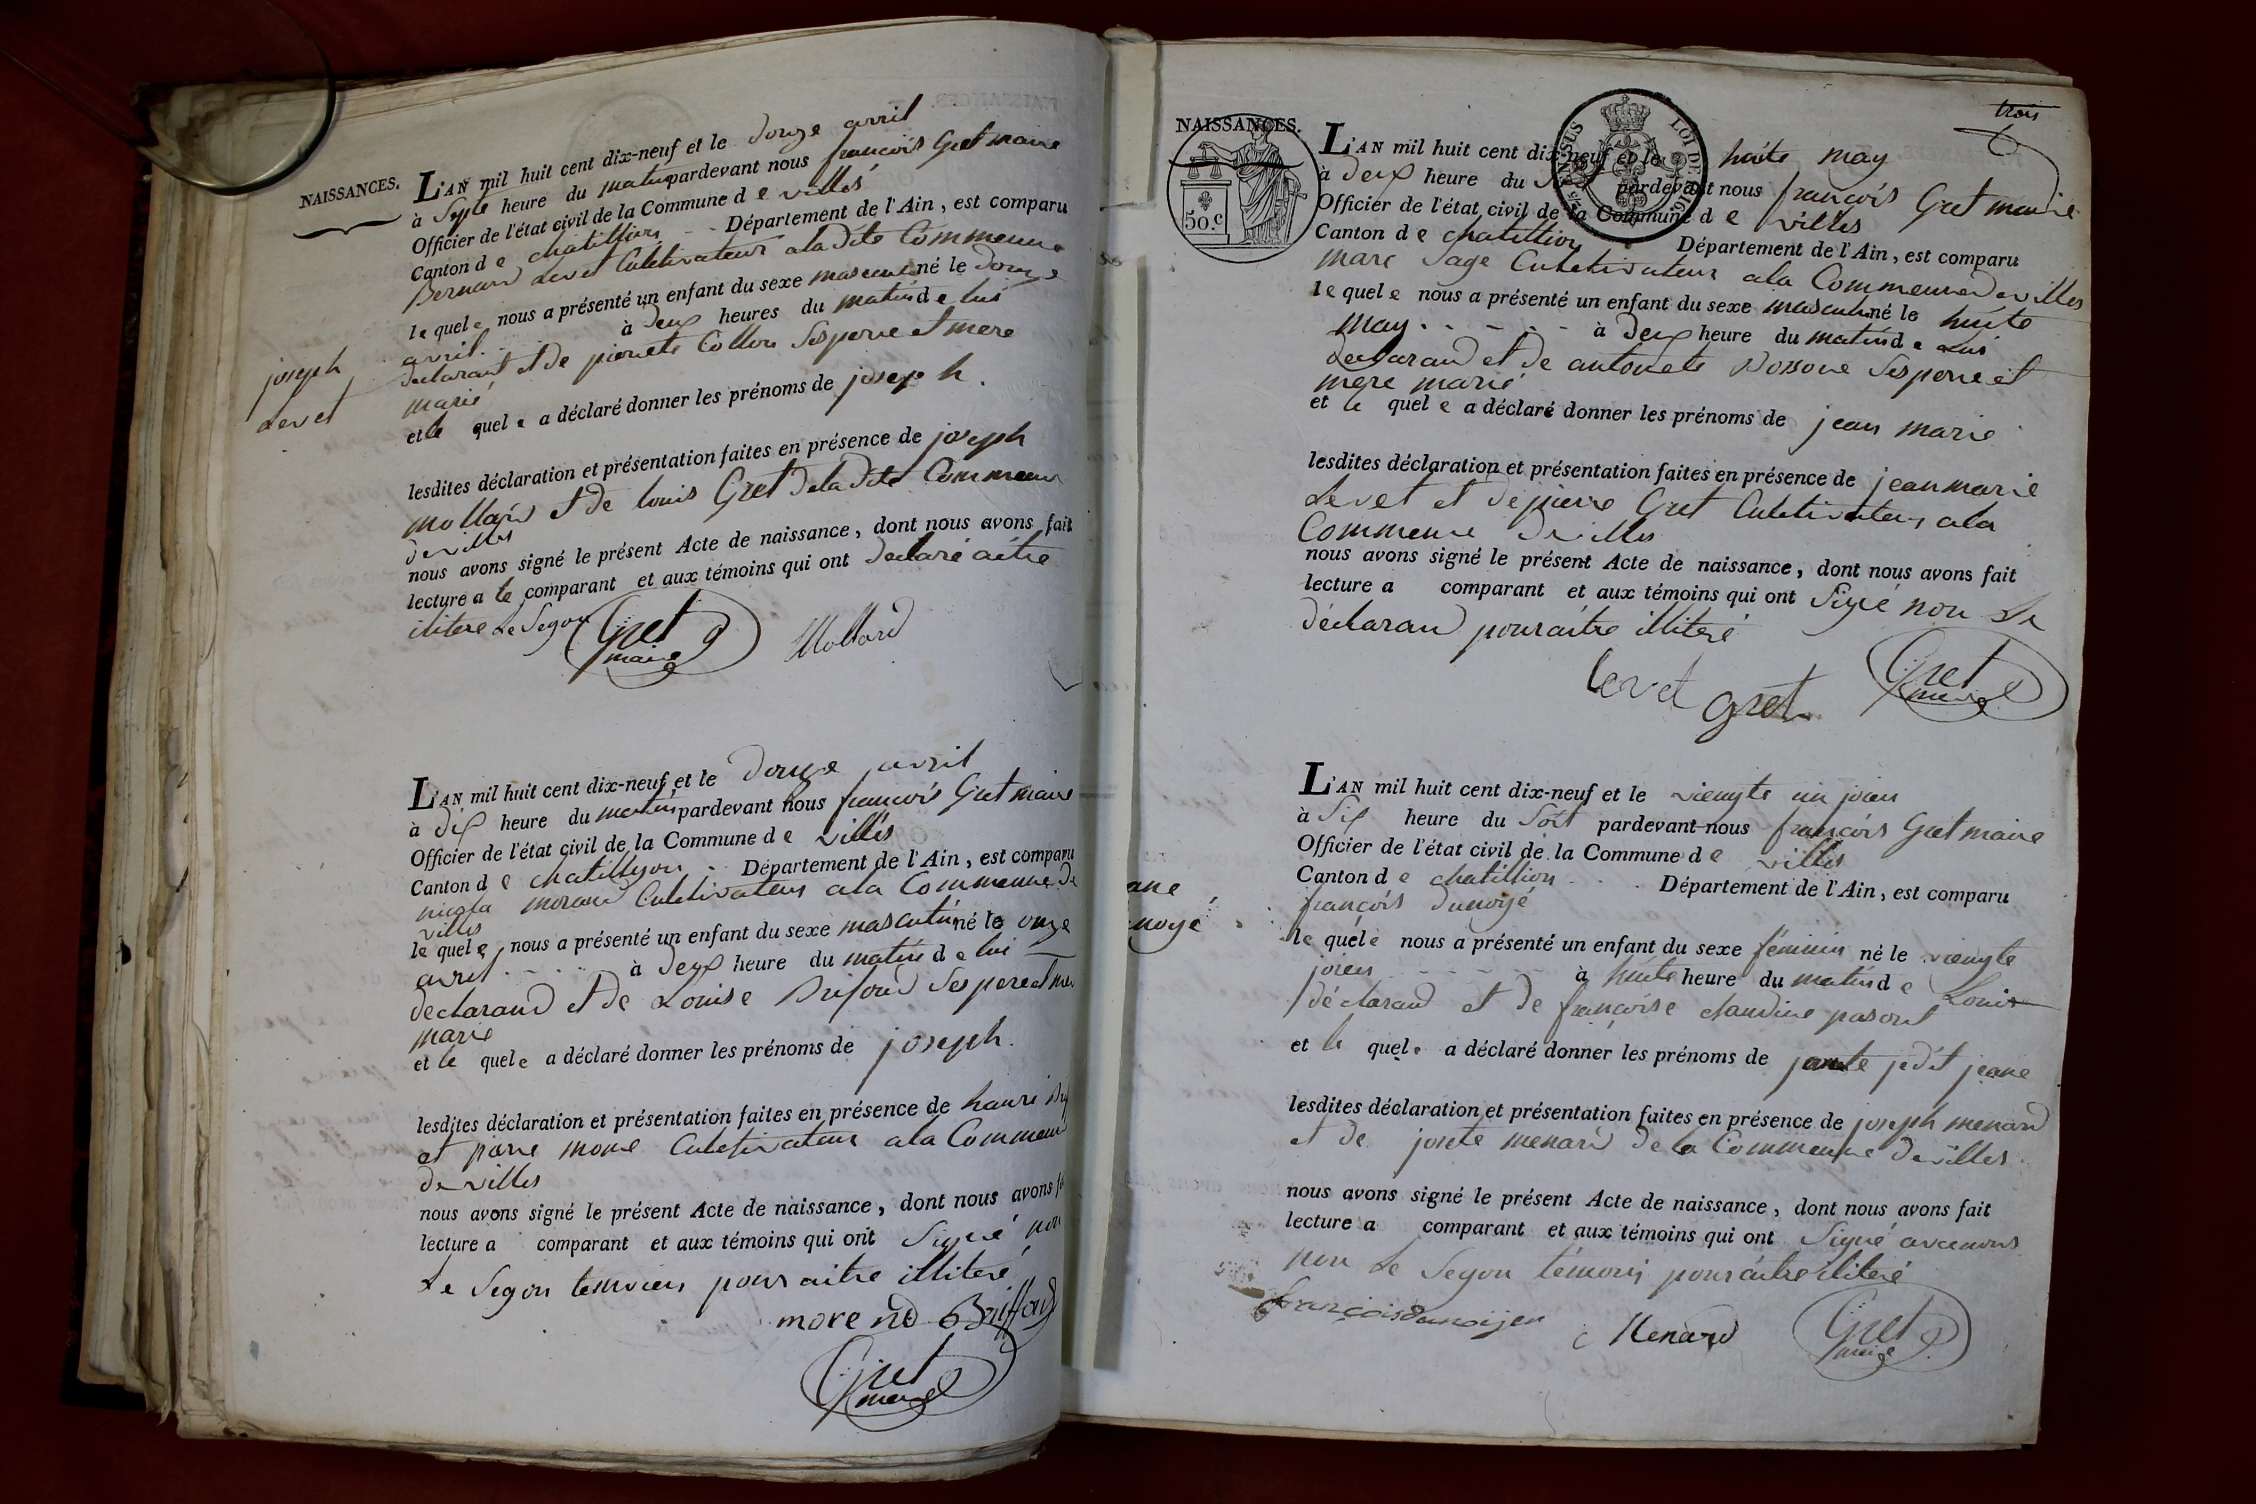 NAISSANCES.
L'AN mil huit cent dix-neuf et le douze avril
à Septe heure du matin pardevant nous francois Gret maire
Officier de l'état civil de la Commune d e villés
Canton d e chatillion Département de l'Ain, est comparu
Bernard Levet Culetivateur a la dite Commeune
le quel e nous a présenté un enfant du sexe masculin né le douze
avril. à deux heures du matin d e lui
declarant et de pierrete Collon Ses perre et mere
marié
et le quel e a déclaré donner les prénoms de joseph.
joseph
Levet
lesdites déclaration et présentation faites en présence de joseph
mollard et de louis Gret de la dite Commeune
de villes
nous avons signé le présent Acte de naissance, dont nous avons fait
lecture a le comparant et aux témoins qui ont declaré aitre
ilitere Le Segon
Gret
maire
Mollard
L'AN mil huit cent dix-neuf et le douze avril
à dix heure du matin pardevant nous francois Gret maire
Officier de l'état civil de la Commune d e villés
Canton d e chatillion Département de l'Ain, est comparu
nicola morand Culetivateur a la Commeune de
villes
le quel e nous a présenté un enfant du sexe masculin né le onze
avril à deux heure du matin d e lui
declarand et de Louise Brifoud Ses pere et mer
marie
et le quel e a déclaré donner les prénoms de joseph.
lesdites déclaration et présentation faites en présence de hauri
et piere mone Culetivateur a la Commeune
de villes
nous avons signé le présent Acte de naissance, dont nous avons
lecture a comparant et aux témoins qui ont Signé non
Le Segon temoien pour aitre illiteré
morend Briffoud
Gret
maire
trois
NAISSANCES.
50.c
LOI DE 1816
L'AN mil huit cent dix-neuf et le huite may
à deux heure du Soir pardevant nous francois Gret maire
Officier de l'état civil de la Commune d e villes
Canton d e chatillion Département de l'Ain, est comparu
marc Sage Culetivateur a la Commeune de villes
le quel e nous a présenté un enfant du sexe masculin né le huite
may. à deux heure du matin d e Lui
declarand et de antonete Bossone Ses perre et
mere marié
et le quel e a déclaré donner les prénoms de jean marie
lesdites déclaration et présentation faites en présence de jean marie
Levet et de pierre Gret Culetivateur a la
Commeune de villes
nous avons signé le présent Acte de naissance, dont nous avons fait
lecture a comparant et aux témoins qui ont Signé non Le
déclarand pour aitre illiteré
levet gret
Gret
maire
L'AN mil huit cent dix-neuf et le viengte un joien
à Six heure du Soit pardevant nous francois Gret maire
Officier de l'état civil de la Commune d e villes
Canton d e chatillion Département de l'Ain, est comparu
françois dunoyé
le quel e nous a présenté un enfant du sexe féminin né le viengte
joien à huite heure du matin d e Loui
déclarand et de françoise claudine pasout
et le quel e a déclaré donner les prénoms de janete jedit jeane
ane
noyé
lesdites déclaration et présentation faites en présence de joseph menard
et de josete menard de la Commeune de villes.
nous avons signé le présent Acte de naissance, dont nous avons fait
lecture a comparant et aux témoins qui ont Signé avec nous
non Le Segon témoin pour aitre iliteré
françois dunoijer
Menard
Gret
maire